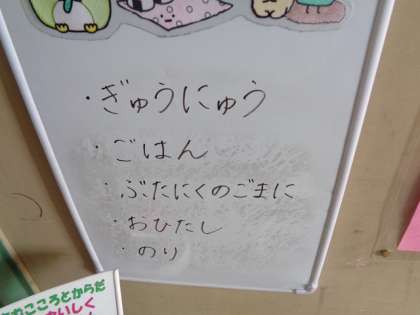 ・ぎゅうにゅう
・ごはん
・ぶたにくのごまに
・おひたし
・のり
こころとからだ
おいしく